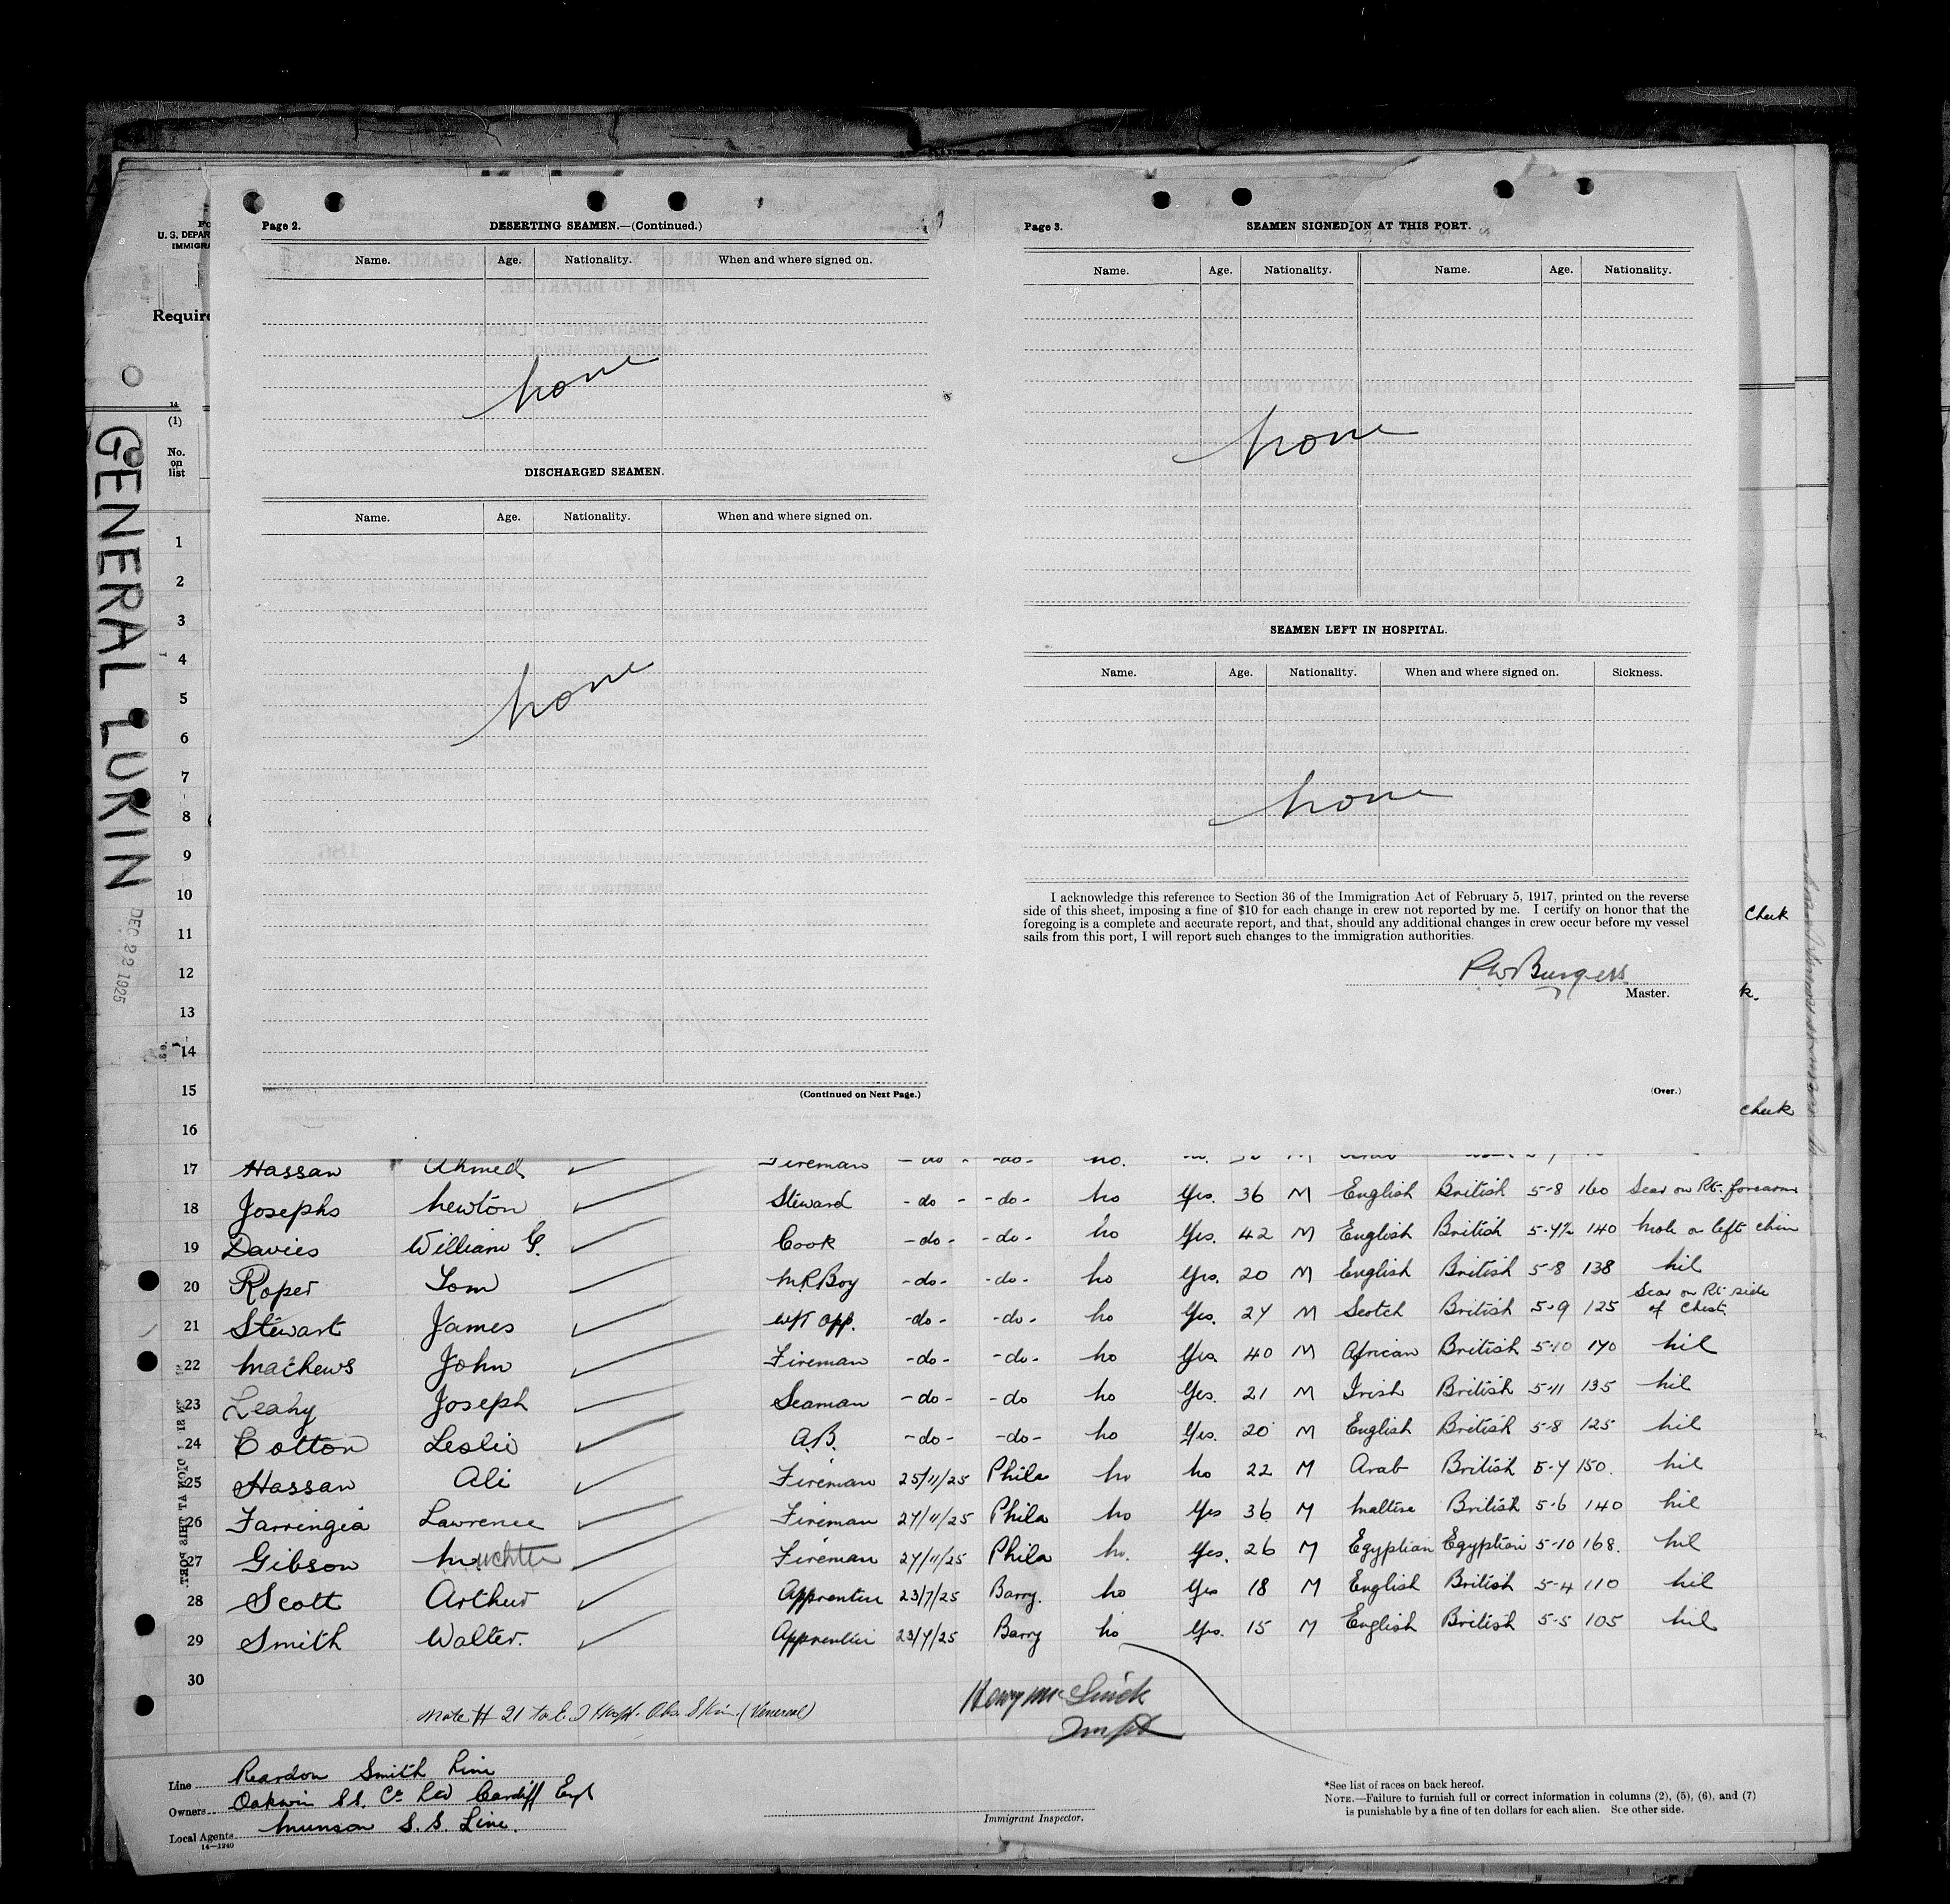 Page 2.
DESERTING SEAMEN.—(Continued.)
Name. Age. Nationality. When and where signed on.
none
DISCHARGED SEAMEN.
Name. Age. Nationality. When and where signed on.
none
(Continued on Next Page.)
Page 3.
SEAMEN SIGNED ON AT THIS PORT.
Name. Age. Nationality. Name. Age. Nationality.
none
SEAMEN LEFT IN HOSPITAL.
Name. Age. Nationality. When and where signed on. Sickness.
none
I acknowledge this reference to Section 36 of the Immigration Act of February 5, 1917, printed on the reverse
side of this sheet, imposing a fine of $10 for each change in crew not reported by me. I certify on honor that the
foregoing is a complete and accurate report, and that, should any additional changes in crew occur before my vessel
sails from this port, I will report such changes to the immigration authorities.
P.W. Burgess
Master.
(Over.)
U. S. DEPAR
IMMIGRA
Require
GENERAL LUKIN
DEC 22 1925
14
(1)
No.
on
list
1
2
3
4
5
6
7
8
9
10
11
12
13
14
15
16
Cheek
k.
cheek
17 Hassan Ahmed Fireman -do- -do- no.
18 Josephs Newton Steward -do- -do- no Yes. 36 M English British 5-8 160 Scar on Rt. forearm
19 Davies William G. Cook -do- -do- no Yes. 42 M English British 5-7½ 140 Mole on left chin
20 Roper Tom M.R Boy -do- -do- no Yes. 20 M English British 5-8 138 nil
21 Stewart James W/T Opp. -do- -do- no Yes. 27 M Scotch British 5-9 125 Scar on Rt side
of Chest.
22 Mathews John Fireman -do- -do- no Yes. 40 M African British 5-10 170 nil
23 Leahy Joseph Seaman -do- -do no Yes. 21 M Irish British 5-11 135 nil
24 Cotton Leslie A.B. -do- -do- no Yes. 20 M English British 5-8 125 nil
25 Hassan Ali Fireman 25/11/25 Phila no no 22 M Arab British 5-7 150. nil
26 Farringia Lawrence Fireman 27/11/25 Phila no Yes 36 M Maltese British 5-6 140 nil
27 Gibson Muchter Fireman 27/11/25 Phila no. Yes. 26 M Egyptian Egyptian 5-10 168. nil
28 Scott Arthur Apprentice 23/7/25 Barry. no Yes 18 M English British 5-4 110 nil
29 Smith Walter. Apprentice 23/7/25 Barry no Yes. 15 M English British 5-5 105 nil
30
Note # 21 to E I Hosp. Obs. Skin. (Venereal)
Insptr
Line Reardon Smith Line
Owners Oakwin S.S. Co Ltd Cardiff Engl
Local Agents Munson S. S. Line.
14—1240
Immigrant Inspector.
*See list of races on back hereof.
NOTE.—Failure to furnish full or correct information in columns (2), (5), (6), and (7)
is punishable by a fine of ten dollars for each alien. See other side.